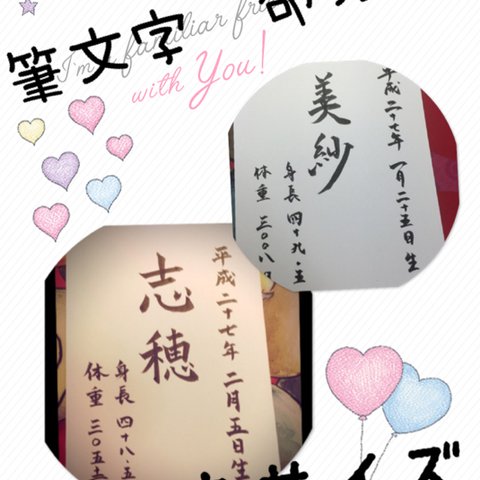 筆文字
I'm familiar
with You!
平成二十七年 一月二十五日生
美紗
身長 四十九・五
体重 三〇〇八
平成二十七年 二月五日生
志穂
身長 四十八・五
体重 三〇五
サイズ